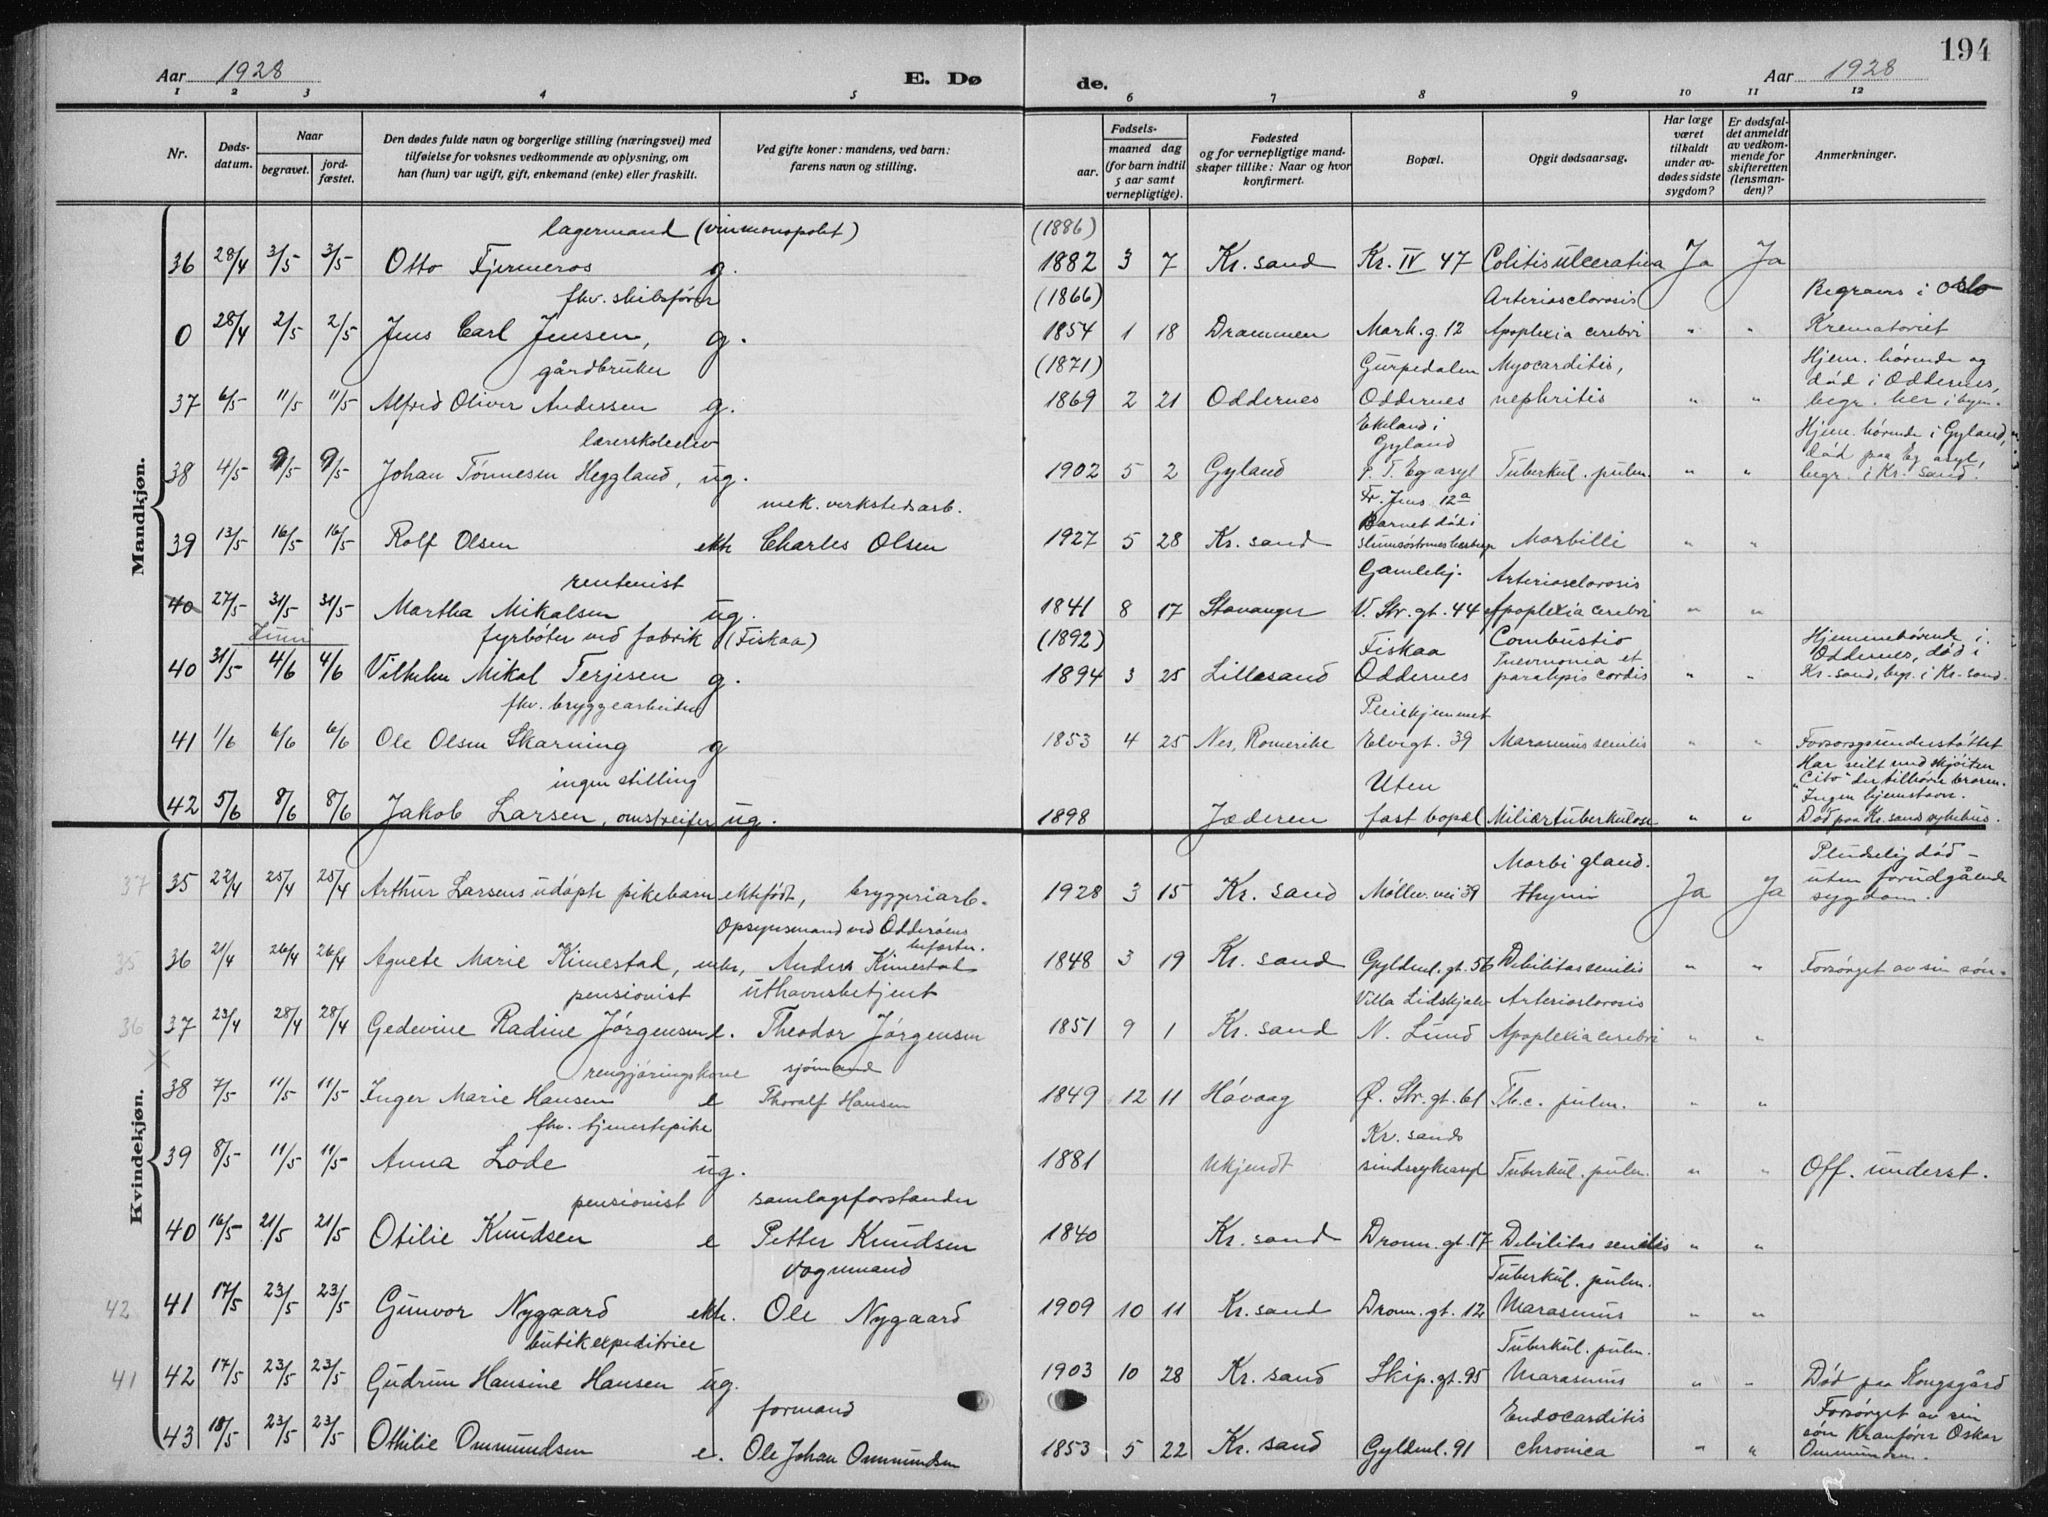 Aar 1928
E. Dø
de.
Aar 1928
194
1 2 3 4 5 6 7 8 9 10 11 12
Nr.
Døds-
datum.
Naar
begravet.
jord-
fæstet.
Den dødes fulde navn og borgerlige stilling (næringsvei) med
tilføielse for voksnes vedkommende av oplysning, om
han (hun) var ugift, gift, enkemand (enke) eller fraskilt.
Ved gifte koner: mandens, ved barn:
farens navn og stilling.
Fødsels-
aar.
maaned dag
(for barn indtil
5 aar samt
vernepligtige).
Fødested
og for vernepligtige mand-
skaper tillike: Naar og hvor
konfirmert.
Bopæl.
Opgit dødsaarsag.
Har læge
været
tilkaldt
under av-
dødes sidste
sygdom?
Er dødsfal-
det anmeldt
av vedkom-
mende for
skifteretten
(lensman-
den)?
Anmerkninger.
Mandkjøn.
lagermand (vinmonopolet)
(1886)
36 28/4 3/5 3/5 Otto Fjermeros g. 1882 3 7 Kr. sand Kr. IV 47 Colitis ulcerativa Ja Ja
fhv. skibsfører
(1866) Arteriosclerosis Begraves i Oslo
0 28/4 2/5 2/5 Jens Carl Jensen, g. 1854 1 18 Drammen Mark. g. 12 Apoplexia cerebri " " Krematoriet
gårdbruker
(1871) Gurpedalen Myocarditis, Hjem. hørende og
død i Oddernes,
37 6/5 11/5 11/5 Alfred Oliver Andersen g. 1869 2 21 Oddernes Oddernes nephritis " " begr. her i byen.
lærerskoleelev
Ekeland i
Gyland
Hjem. hørende i Gyland,
død paa Eg asyl,
38 4/5 9/5 9/5 Johan Tønnesen Heggland, ug. 1902 5 2 Gyland p. T. Eg asyl Tuberkul. pulm. " " begr. i Kr. sand.
mek. verkstedsarb.
Fr. Jens. 12a
Barnet død i
39 13/5 16/5 16/5 Rolf Olsen ekte Charles Olsen 1927 5 28 Kr. sand Morbilli " "
rentenist
Gamlehj. Arteriosclerosis
40 27/5 31/5 31/5 Martha Mikalsen ug. 1841 8 17 Stavanger V. Str. gt. 44 Apoplexia cerebri " "
Juni
fyrbøter ved fabrik (Fiskaa)
(1892) Fiskaa Combustio Hjemmehørende i
Pneumonia et Oddernes, død i
40 31/5 4/6 4/6 Vilhelm Mikal Terjesen g. 1894 3 25 Lillesand Oddernes paralysis cordis " " Kr. sand, begr. i Kr. sand.
fhv. bryggearbeider
Pleiehjemmet
41 1/6 6/6 6/6 Ole Olsen Skarning g 1853 4 25 Nes, Romerike Elvegt. 39 Marasmus senilis " " Forsorgsunderstøttet
ingen stilling
Uten
Har seilt med skjøiten
"Cito" der tilhører broren.
"Ingen hjemstavn.
42 5/6 8/6 8/6 Jakob Larsen, omstreifer ug. 1898 Jæderen fast bopæl Miliærtuberkulose " " Død paa Kr. sands sykehus.
Kvindekjøn.
Morbi gland. Pludselig død -
uten forudgående
37 35 22/4 25/4 25/4 Arthur Larsens udøpte pikebarn ektefødt, bryggeriarb. 1928 3 15 Kr. sand Møllev. vei 39 thymi Ja Ja sygdom.
Opsynsmand ved Odderøens
befæstn.
35 36 21/4 26/4 26/4 Agnete Marie Kimestad, enke, Anders Kimestad 1848 3 19 Kr. sand Gyldenl. gt. 56 Debilitas senilis " " Forsørget av sin søn.
pensionist uthavnsbetjent
Villa Lidskjalv Arteriosclerosis
36 37 23/4 28/4 28/4 Gedevine Radine Jørgensen e. Theodor Jørgensen 1851 9 1 Kr. sand N. Lund Apoplexia cerebri " "
rengjøringskone sjømand
38 7/5 11/5 11/5 Inger Marie Hansen e Thoralf Hansen 1849 12 11 Høvaag Ø. Str. gt. 61 Tb.c. pulm. " "
fhv. tjenestepike
Kr. sands
39 8/5 11/5 11/5 Anna Lode ug. 1881 Ukjendt sindssykeasyl Tuberkul. pulm. " " Off. underst.
pensionist samlagsforstander
40 16/5 21/5 21/5 Otilie Knudsen e Petter Knudsen 1840 Kr. sand Dronn. gt. 17 Debilitas senilis " "
vognmand
Tuberkul. pulm.
42 41 17/5 23/5 23/5 Gunvor Nygaard ekte. Ole Nygaard 1909 10 11 Kr. sand Dronn. gt. 12 Marasmus " "
butikexpeditrice
Tuberkul. pulm.
41 42 17/5 23/5 23/5 Gudrun Hansine Hansen ug. 1903 10 28 Kr. sand Skip. gt. 95 Marasmus " " Død paa Kongsgård
formand
Endocarditis Forsørget av sin
søn Kranfører Oskar
43 18/5 23/5 23/5 Othilie Ommundsen e. Ole Johan Ommundsen 1853 5 22 Kr. sand Gyldenl. 91 chronica " " Ommundsen.